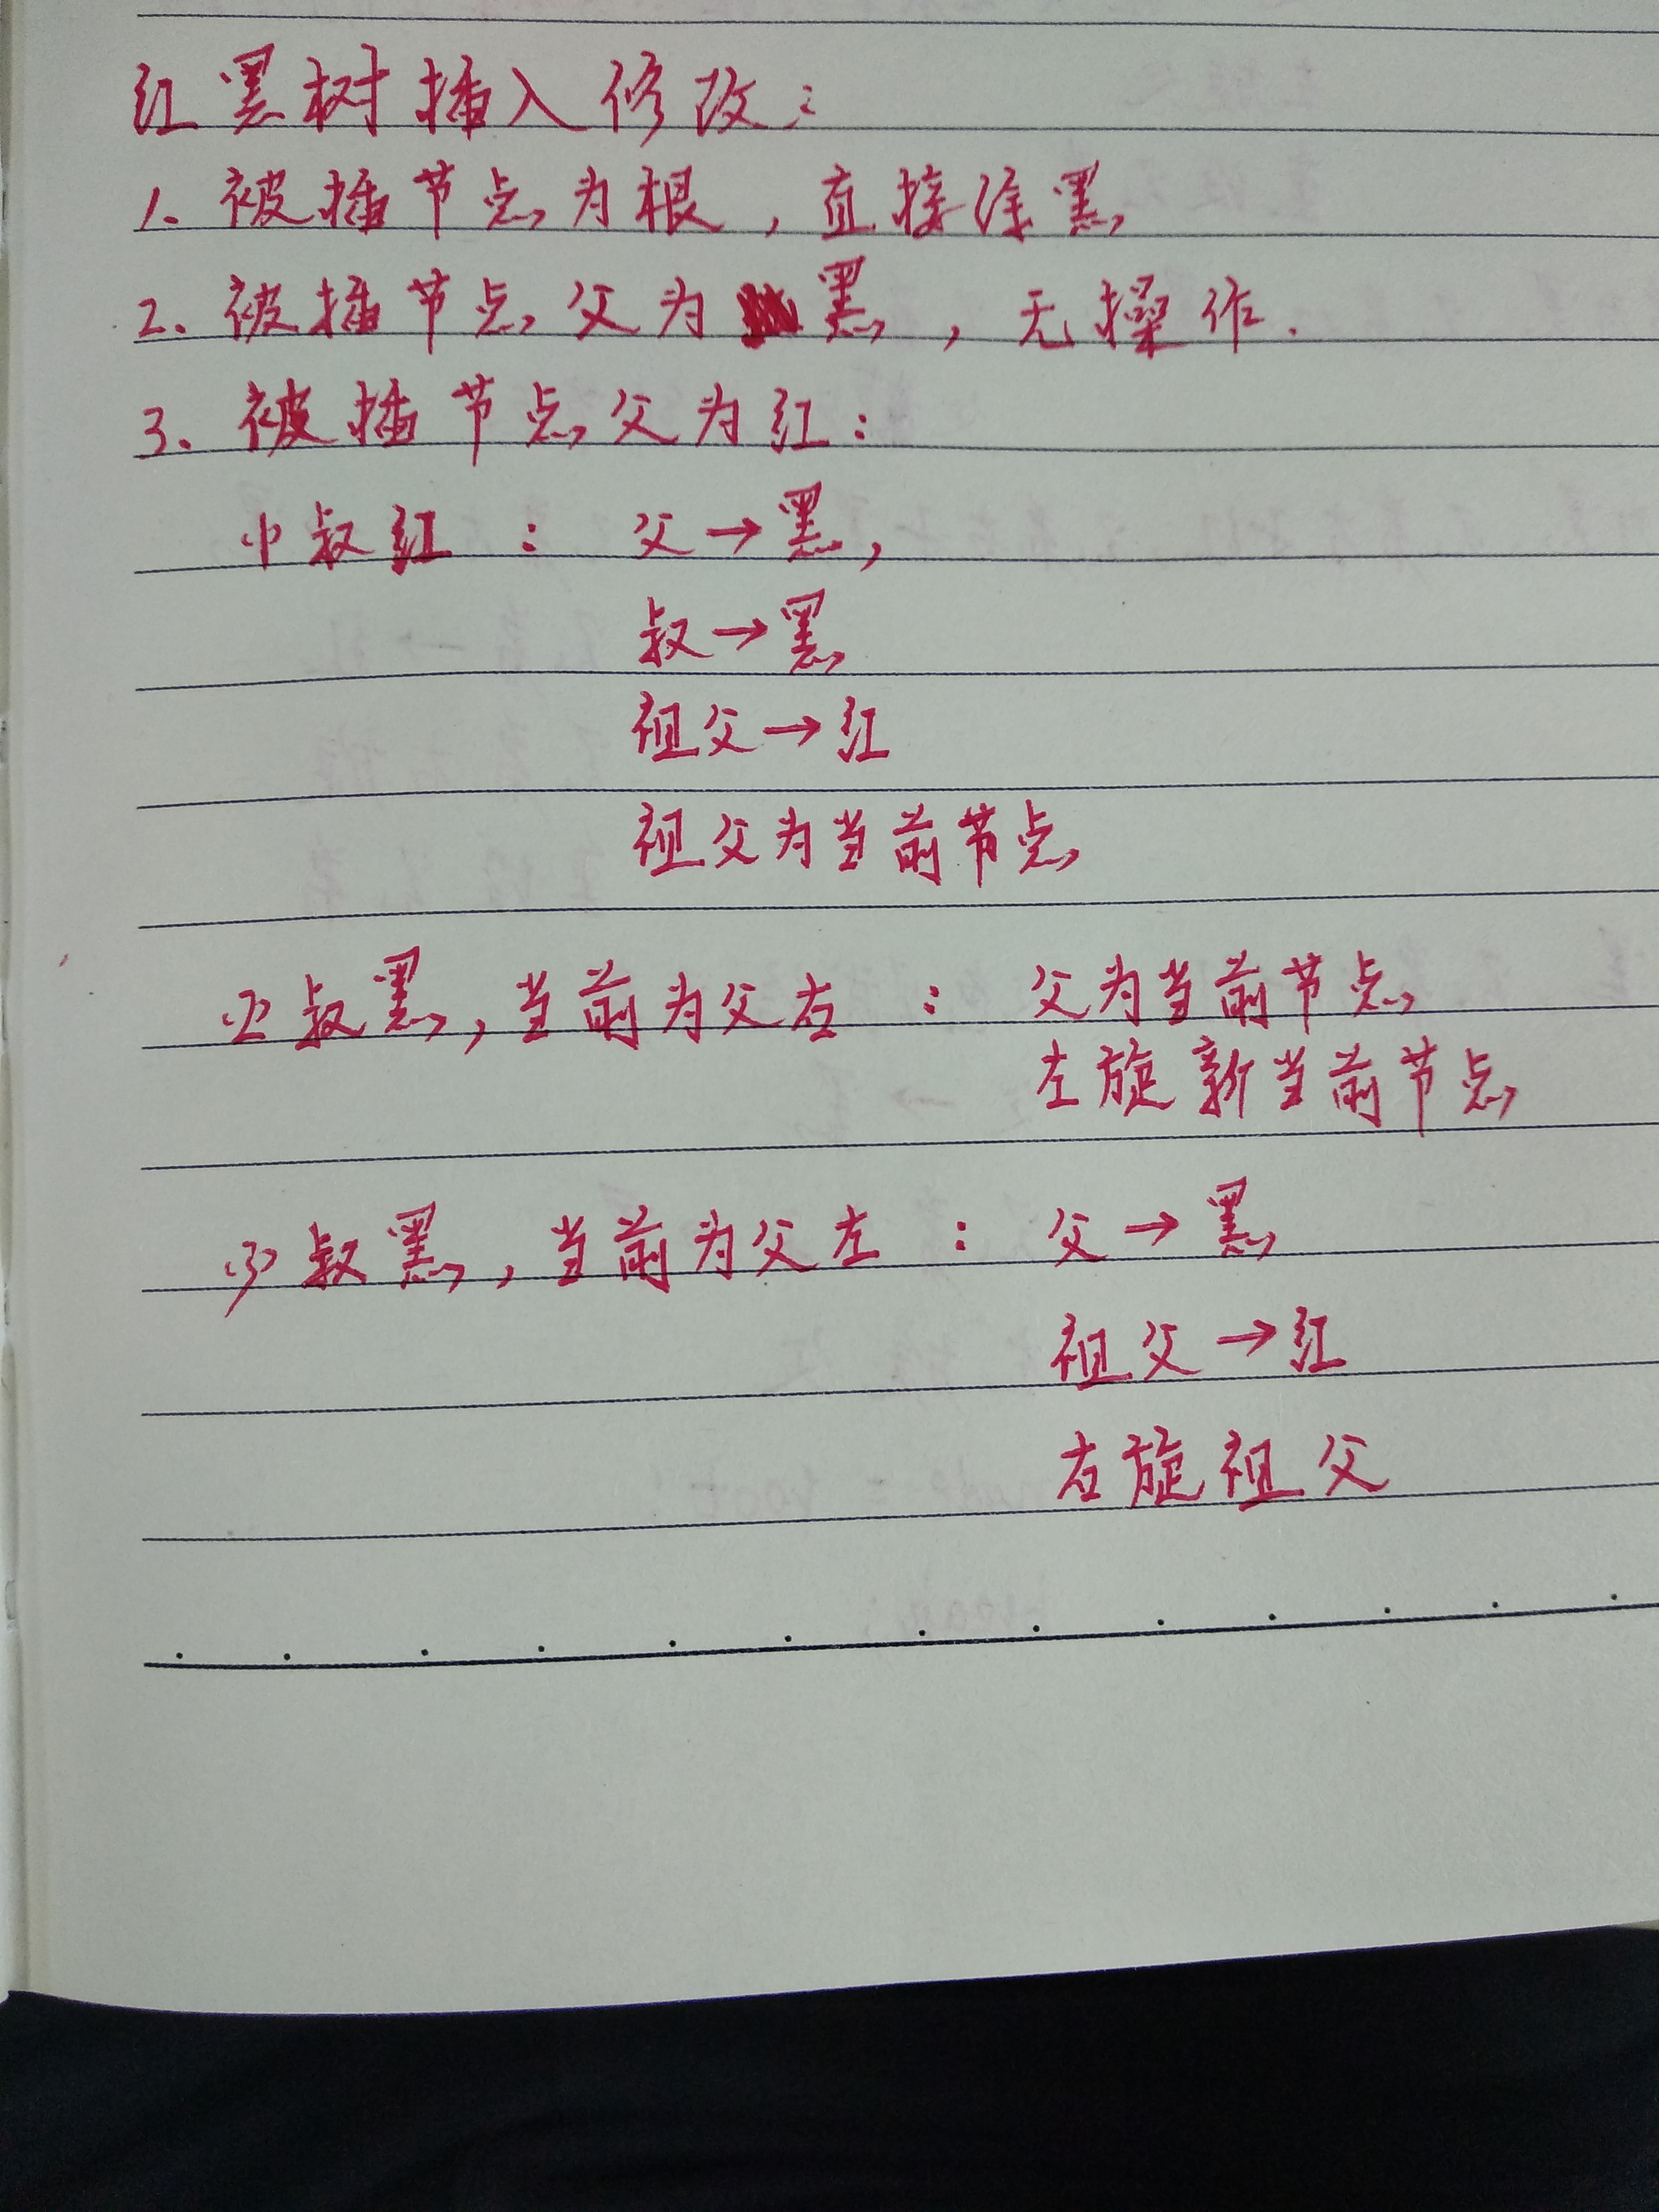 红黑树插入修改:
1. 被插节点为根,直接涂黑
2. 被插节点父为黑,无操作.
3. 被插节点父为红:
(1) 叔红 : 父→黑,
叔→黑
祖父→红
祖父为当前节点
(2) 叔黑,当前为父右 : 父为当前节点
左旋新当前节点
(3) 叔黑,当前为父左 : 父→黑
祖父→红
右旋祖父